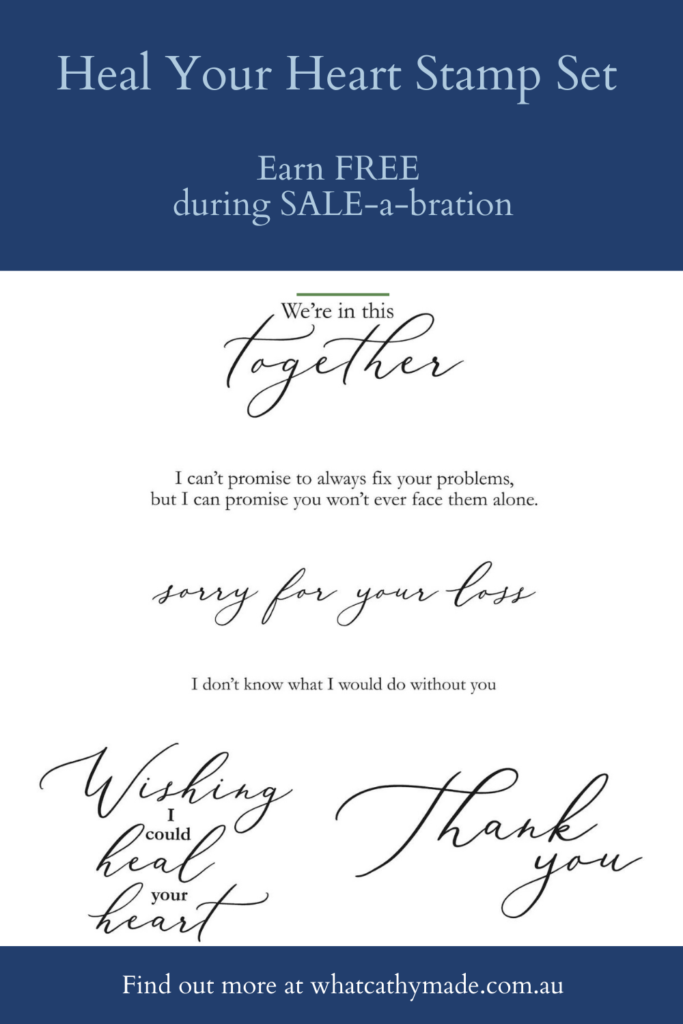 Heal Your Heart Stamp Set
Earn FREE
during SALE-a-bration
We're in this
together
I can't promise to always fix your problems,
but I can promise you won't ever face them alone.
sorry for your loss
I don't know what I would do without you
Wishing
I
could
heal
your
heart
Thank
you
Find out more at whatcathymade.com.au